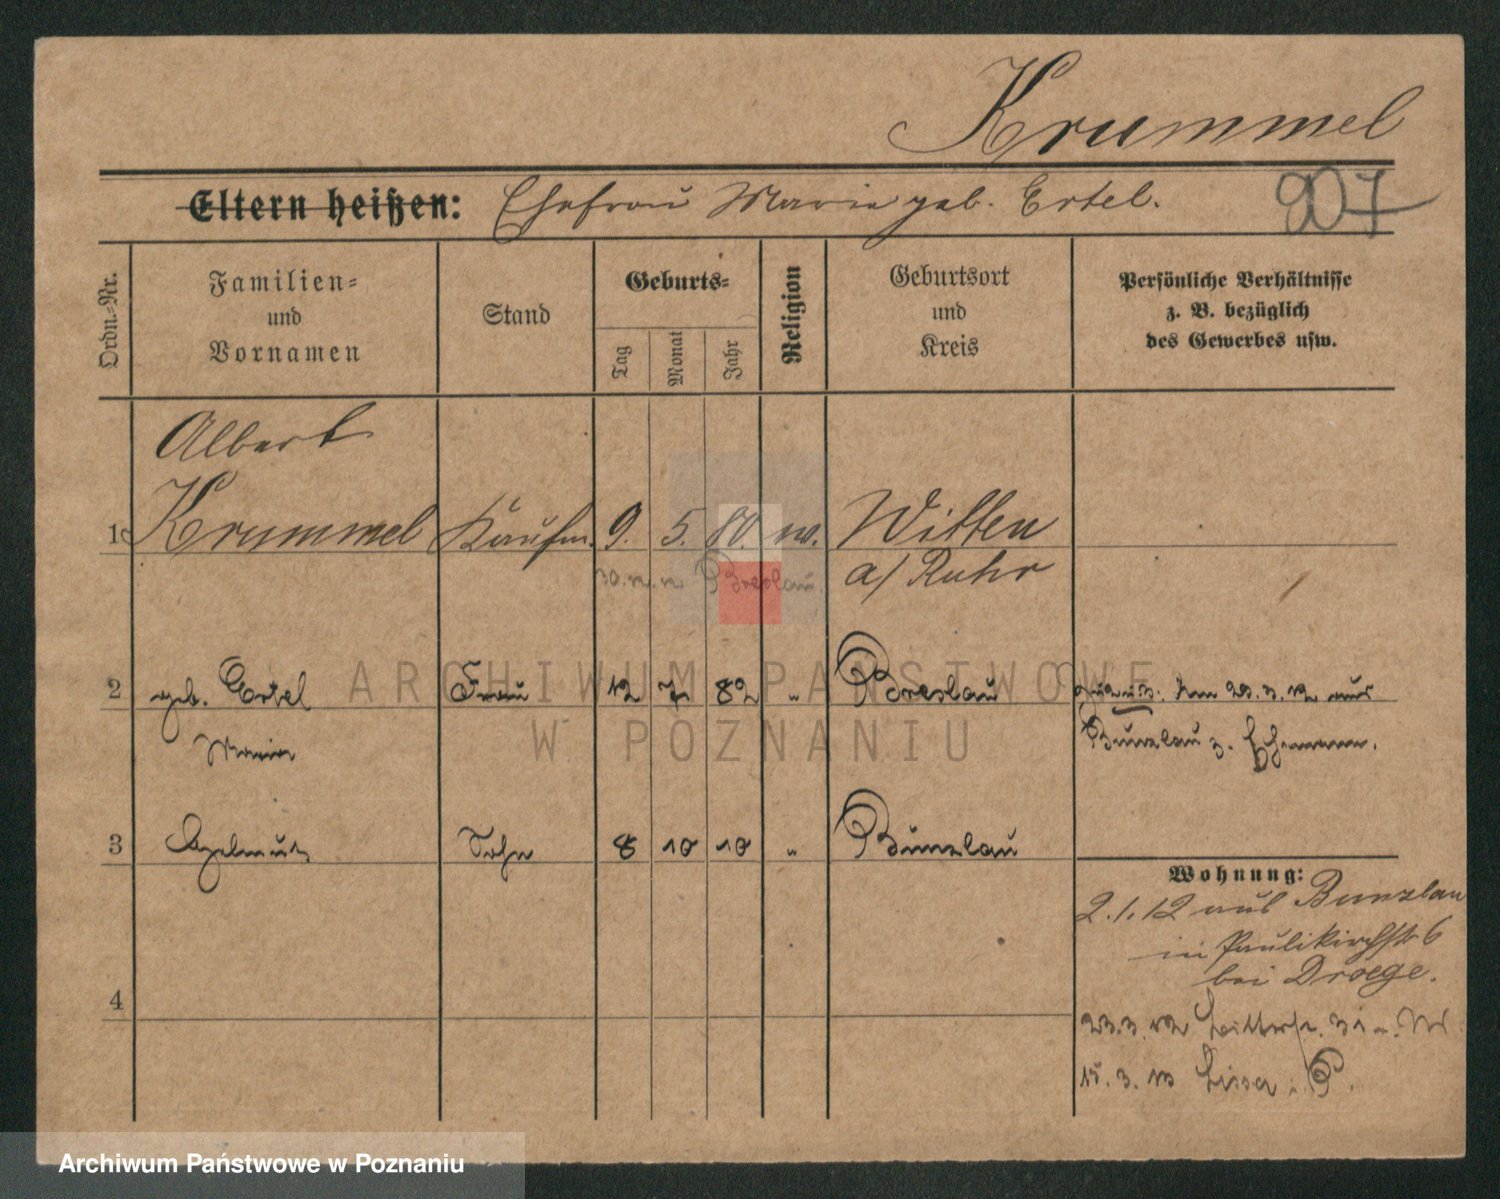 Krummel
Eltern heißen: Ehefrau Marie geb. Ertel.
907
Ordn.-Nr.
Familien-
und
Vornamen
Stand
Geburts-
Tag
Monat
Jahr
Religion
Geburtsort
und
Kreis
Persönliche Verhältnisse
z. B. bezüglich
des Gewerbes usw.
Albert
1 Krummel Kaufm. 9. 5. 80. Witten
a/ Ruhr
Breslau
2 geb. Ertel Frau 12 7 82 " Breslau
Maria
Zu 2 u 3. Am 23.3.12 aus
Bunzlau z. Ehemann.
3 Helmut Sohn 8 10 10 " Bunzlau
4
Wohnung:
2.1.12 aus Bunzlau
in Paulikirchstr 6
bei Droege.
23.3.12 31
15.3.13 Lissa i. P.
ARCHIWUM PAŃSTWOWE
W POZNANIU
Archiwum Państwowe w Poznaniu